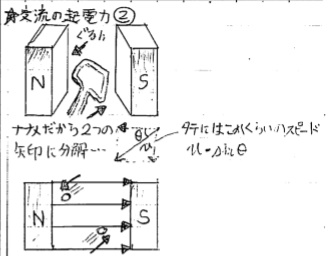 交流の起電力②
ぐるん
N S
ナナメだから2つの
矢印に分解…
θ
タテにはこれくらいのスピード
v・sinθ
N S